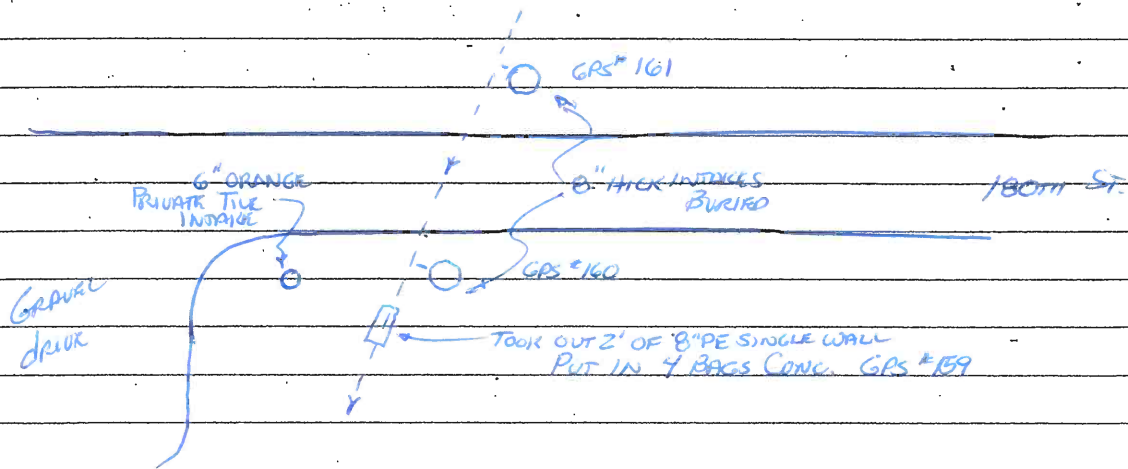 GPS# 161
6" ORANGE
PRIVATE TILE
INTAKE
8" HICK INTAKES
BURIED
180TH ST.
GPS #160
GRAVEL
DRIVE
TOOK OUT 2' OF 8" PE SINGLE WALL
PUT IN 4 BAGS CONC. GPS #159